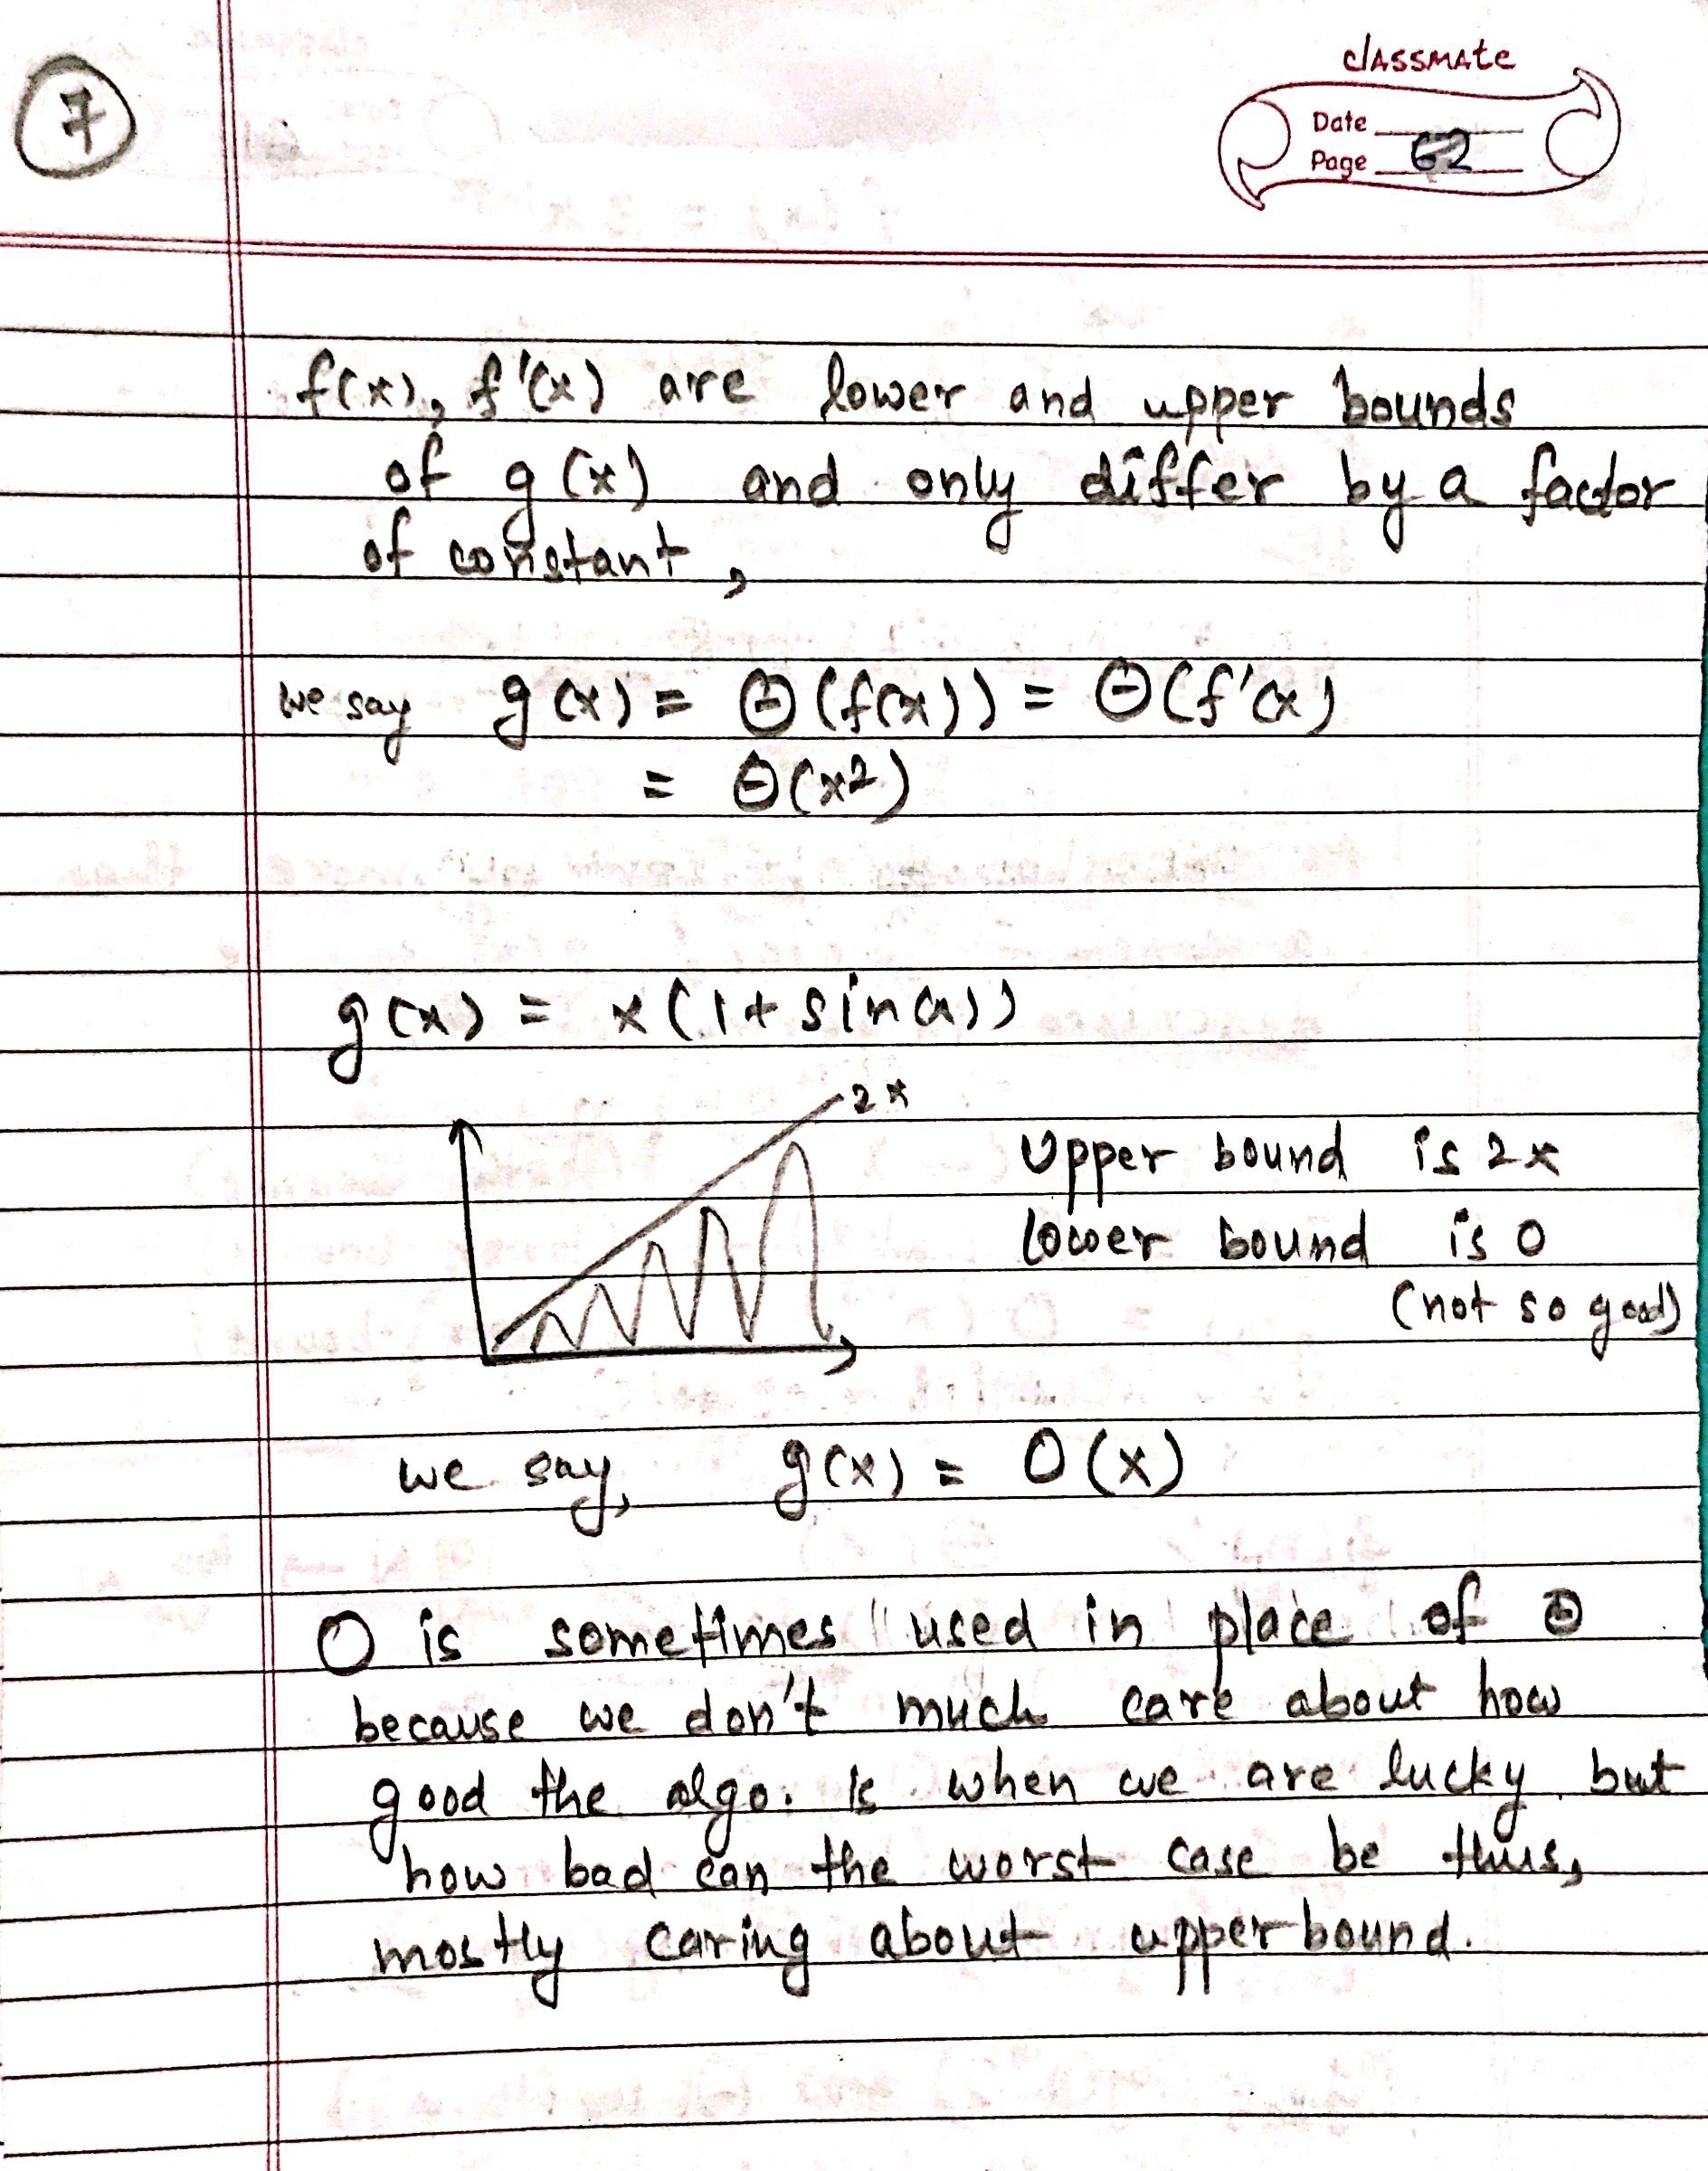 7
classmate
Date
Page 62
f(x), f'(x) are lower and upper bounds
of g(x) and only differ by a factor
of constant,
we say g(x) = Θ(f(x)) = Θ(f'(x)
= Θ(x2)
g(x) = x(1+sin(x))
2x
Upper bound is 2x
lower bound is 0
(not so good)
we say, g(x) = O(x)
O is sometimes used in place of Θ
because we don't much care about how
good the algo. is when we are lucky but
how bad can the worst case be thus,
mostly caring about upper bound.